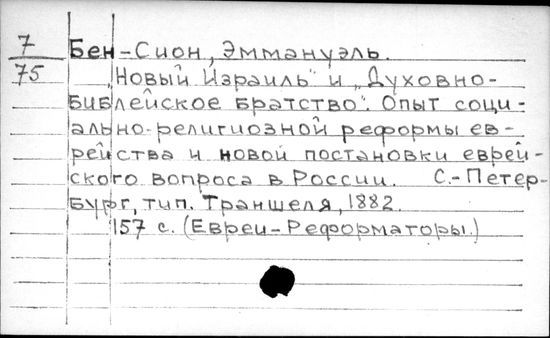 7 Бен-Сион, Эммануэль.
75 „Новый Израиль" и „Духовно-
Библейское Братство". Опыт соци-
ально-религиозной реформы ев-
рейства и новой постановки еврей-
ского вопроса в России. С.-Петер-
бург, тип. Траншеля, 1882.
157 с. (Евреи-Реформаторы.)